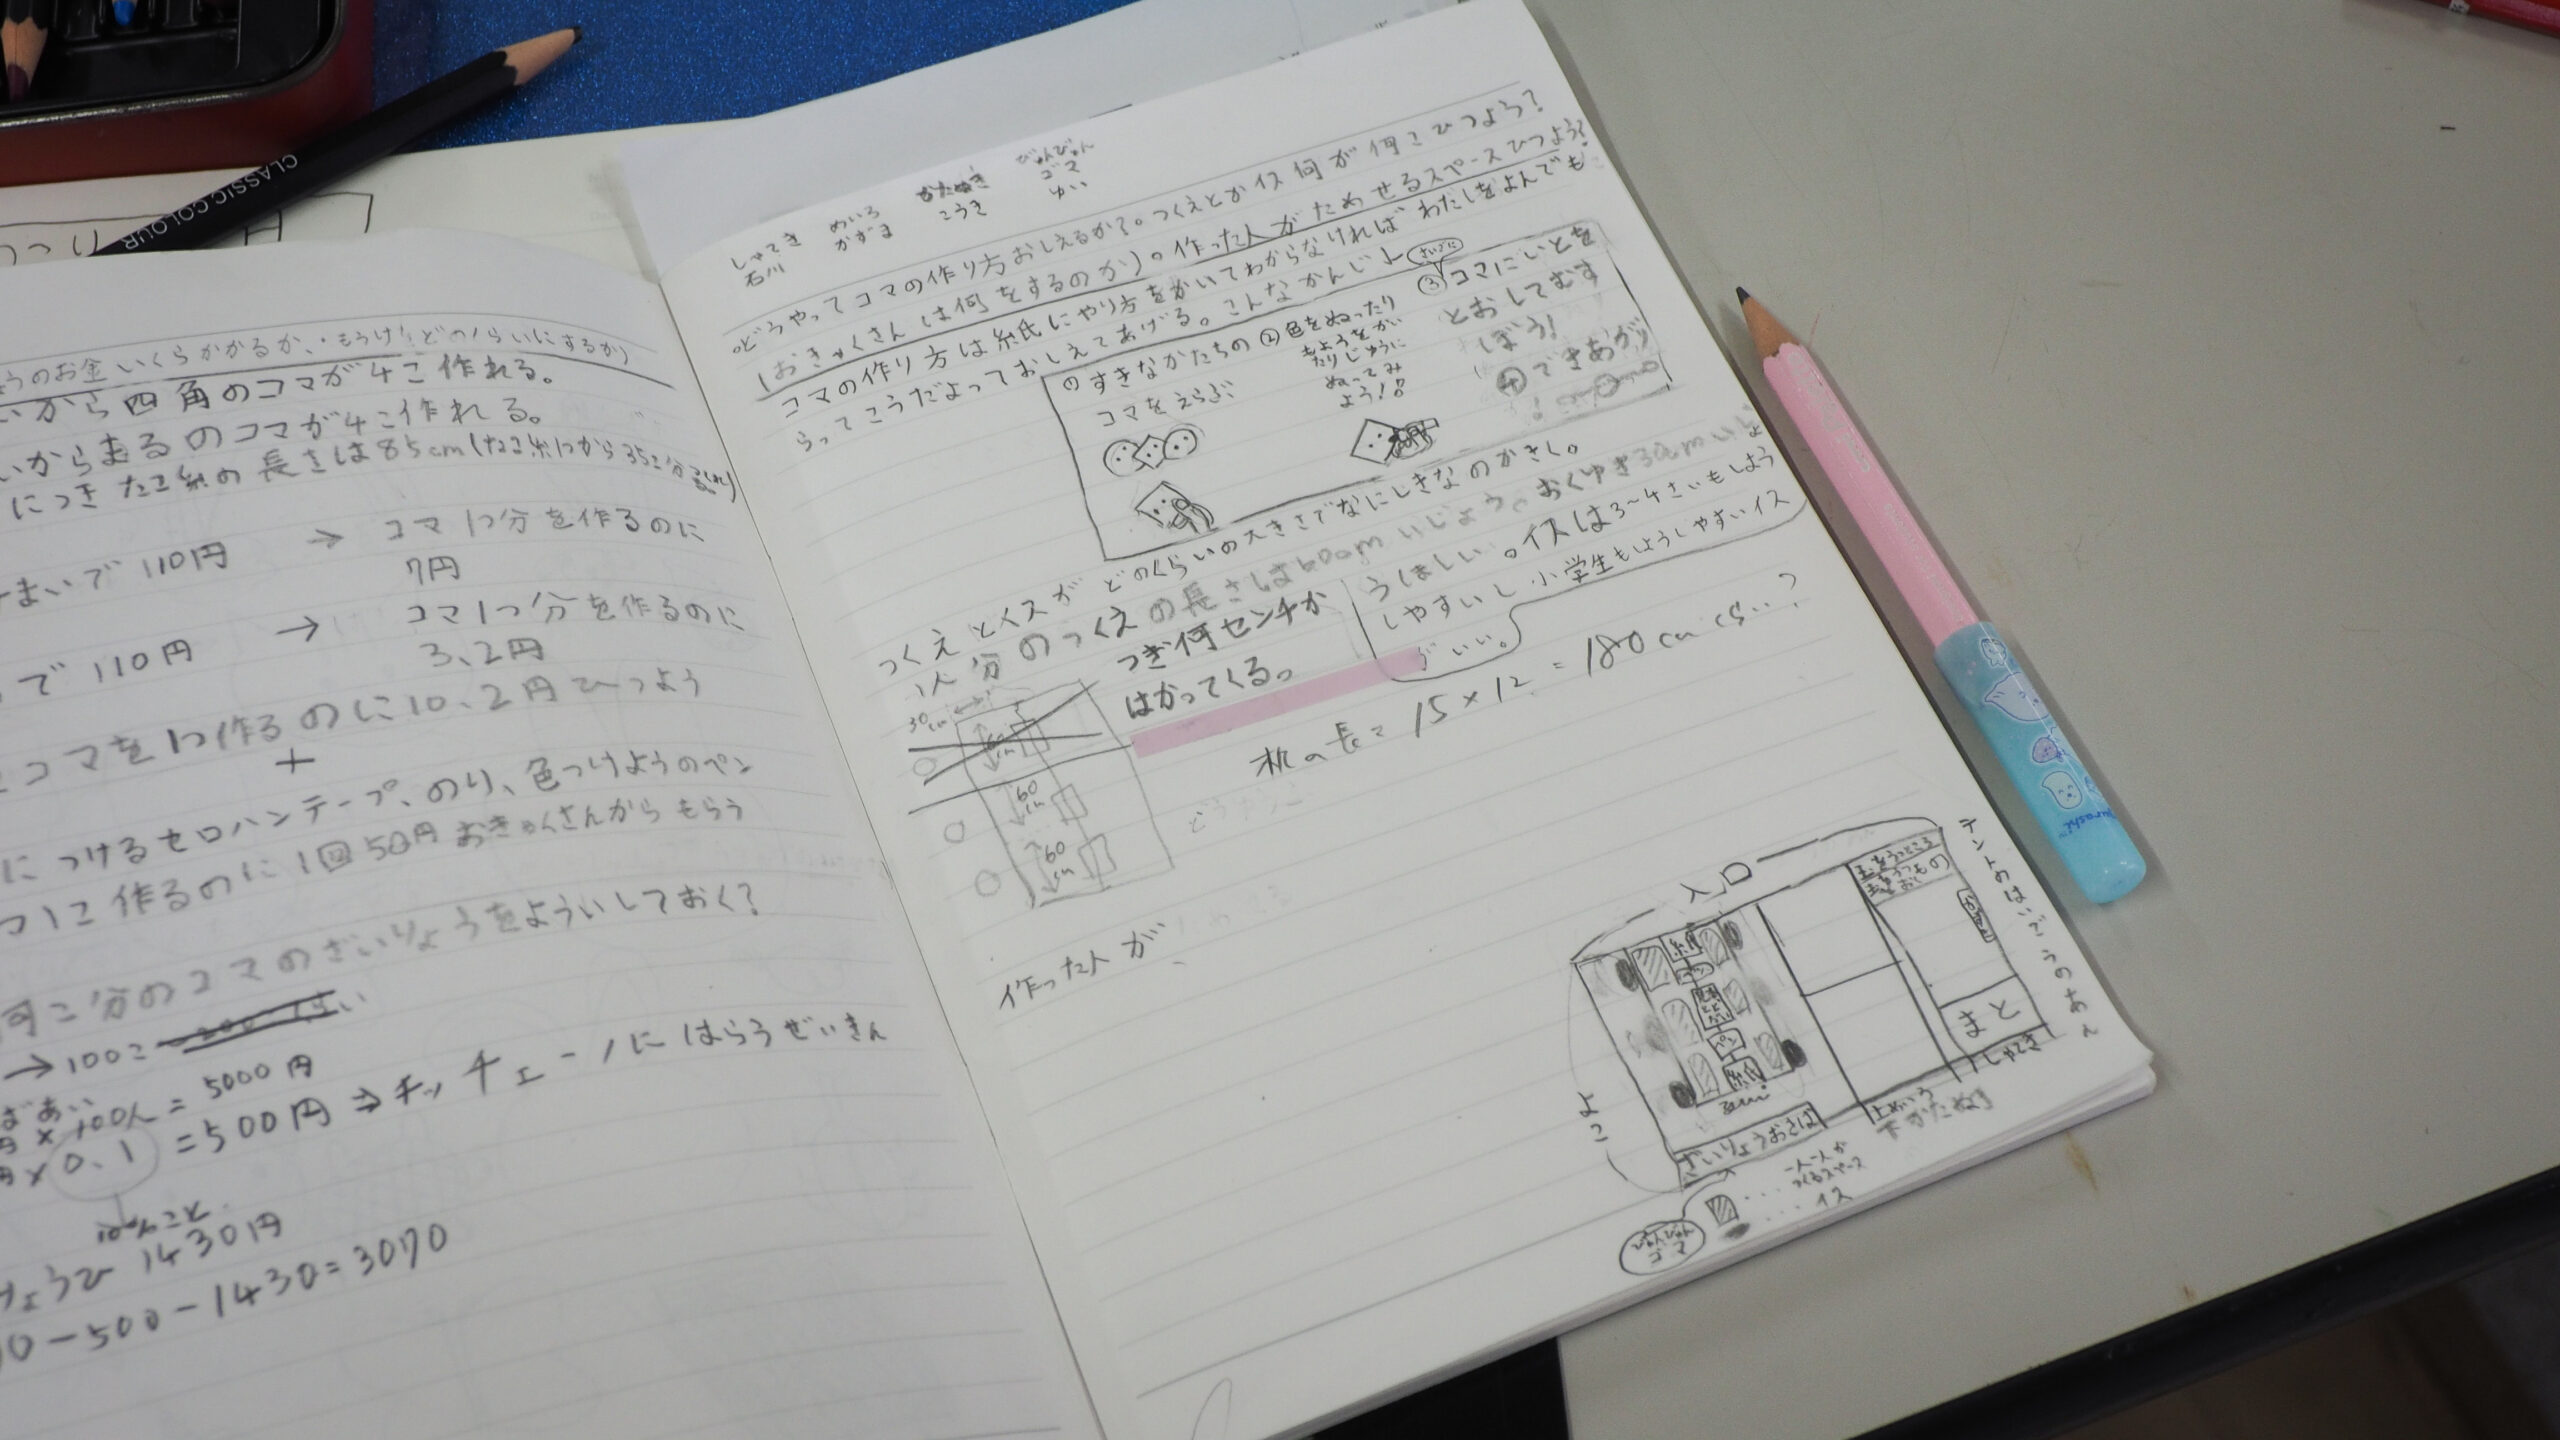 CLASSIC COLOUR
うのお金いくらかかるか、・もうけはどのくらいにするか)
から四角のコマが4こ作れる。
いからまるのコマが4こ作れる。
につきたこ糸の長さは85cm(たこ糸1つから35こ分
まいで110円 → コマ1つ分を作るのに
7円
で110円 → コマ1つ分を作るのに
3、2円
コマを1つ作るのに10、2円ひつよう
+
につけるセロハンテープ、のり、色つけようのペン
つ1こ作るのに1回50円おきゃくさんからもらう
何こ分のコマのざいりょうをよういしておく?
→100こ
ばあい
円×100人=5000円
円×0、1=500円⇒キッチェーノにはらうぜいきん
10%のこと
1430円
0-500-1430=3070
しゃてき
石川
めいろ
かずま
かたぬき
こうき
びゅんびゅん
ゴマ
ゆい
○どうやってコマの作り方おしえるか?。つくえとかイス何が何こひつよう?
(おきゃくさんは何をするのか)。作った人がためせるスペースひつよう?
コマの作り方は紙にやり方をかいてわからなければわたしをよんでも
らってこうだよっておしえてあげる。こんなかんじ↓
のすきなかたちの
コマをえらぶ
②色をぬったり
もようをかい
たりじゆうに
ぬってみ
よう!!
さいごに
③コマにいとを
とおしてむす
ぼう!
④できあがり
つくえとイスがどのくらいの大きさでなにしきなのかきし。
1人分のつくえの長さは60cmいじょう。おくゆき30cmいじょ
うほしい。イスは3~4さいもしよう
しやすいし小学生もようしやすいイス
がいい。
つぎ何センチか
はかってくる。
30cm
60cm
60cm
机の長=15×12=180cmくらい…?
作った人が
入口
テントの
よこ
玉をうつところ
まと
しゃてき
紙
ペン
ペン
ざいりょうおきば
上めいろ
下かたぬき
一人一人が
つくるスペース
イス
びゅんびゅん
ゴマ